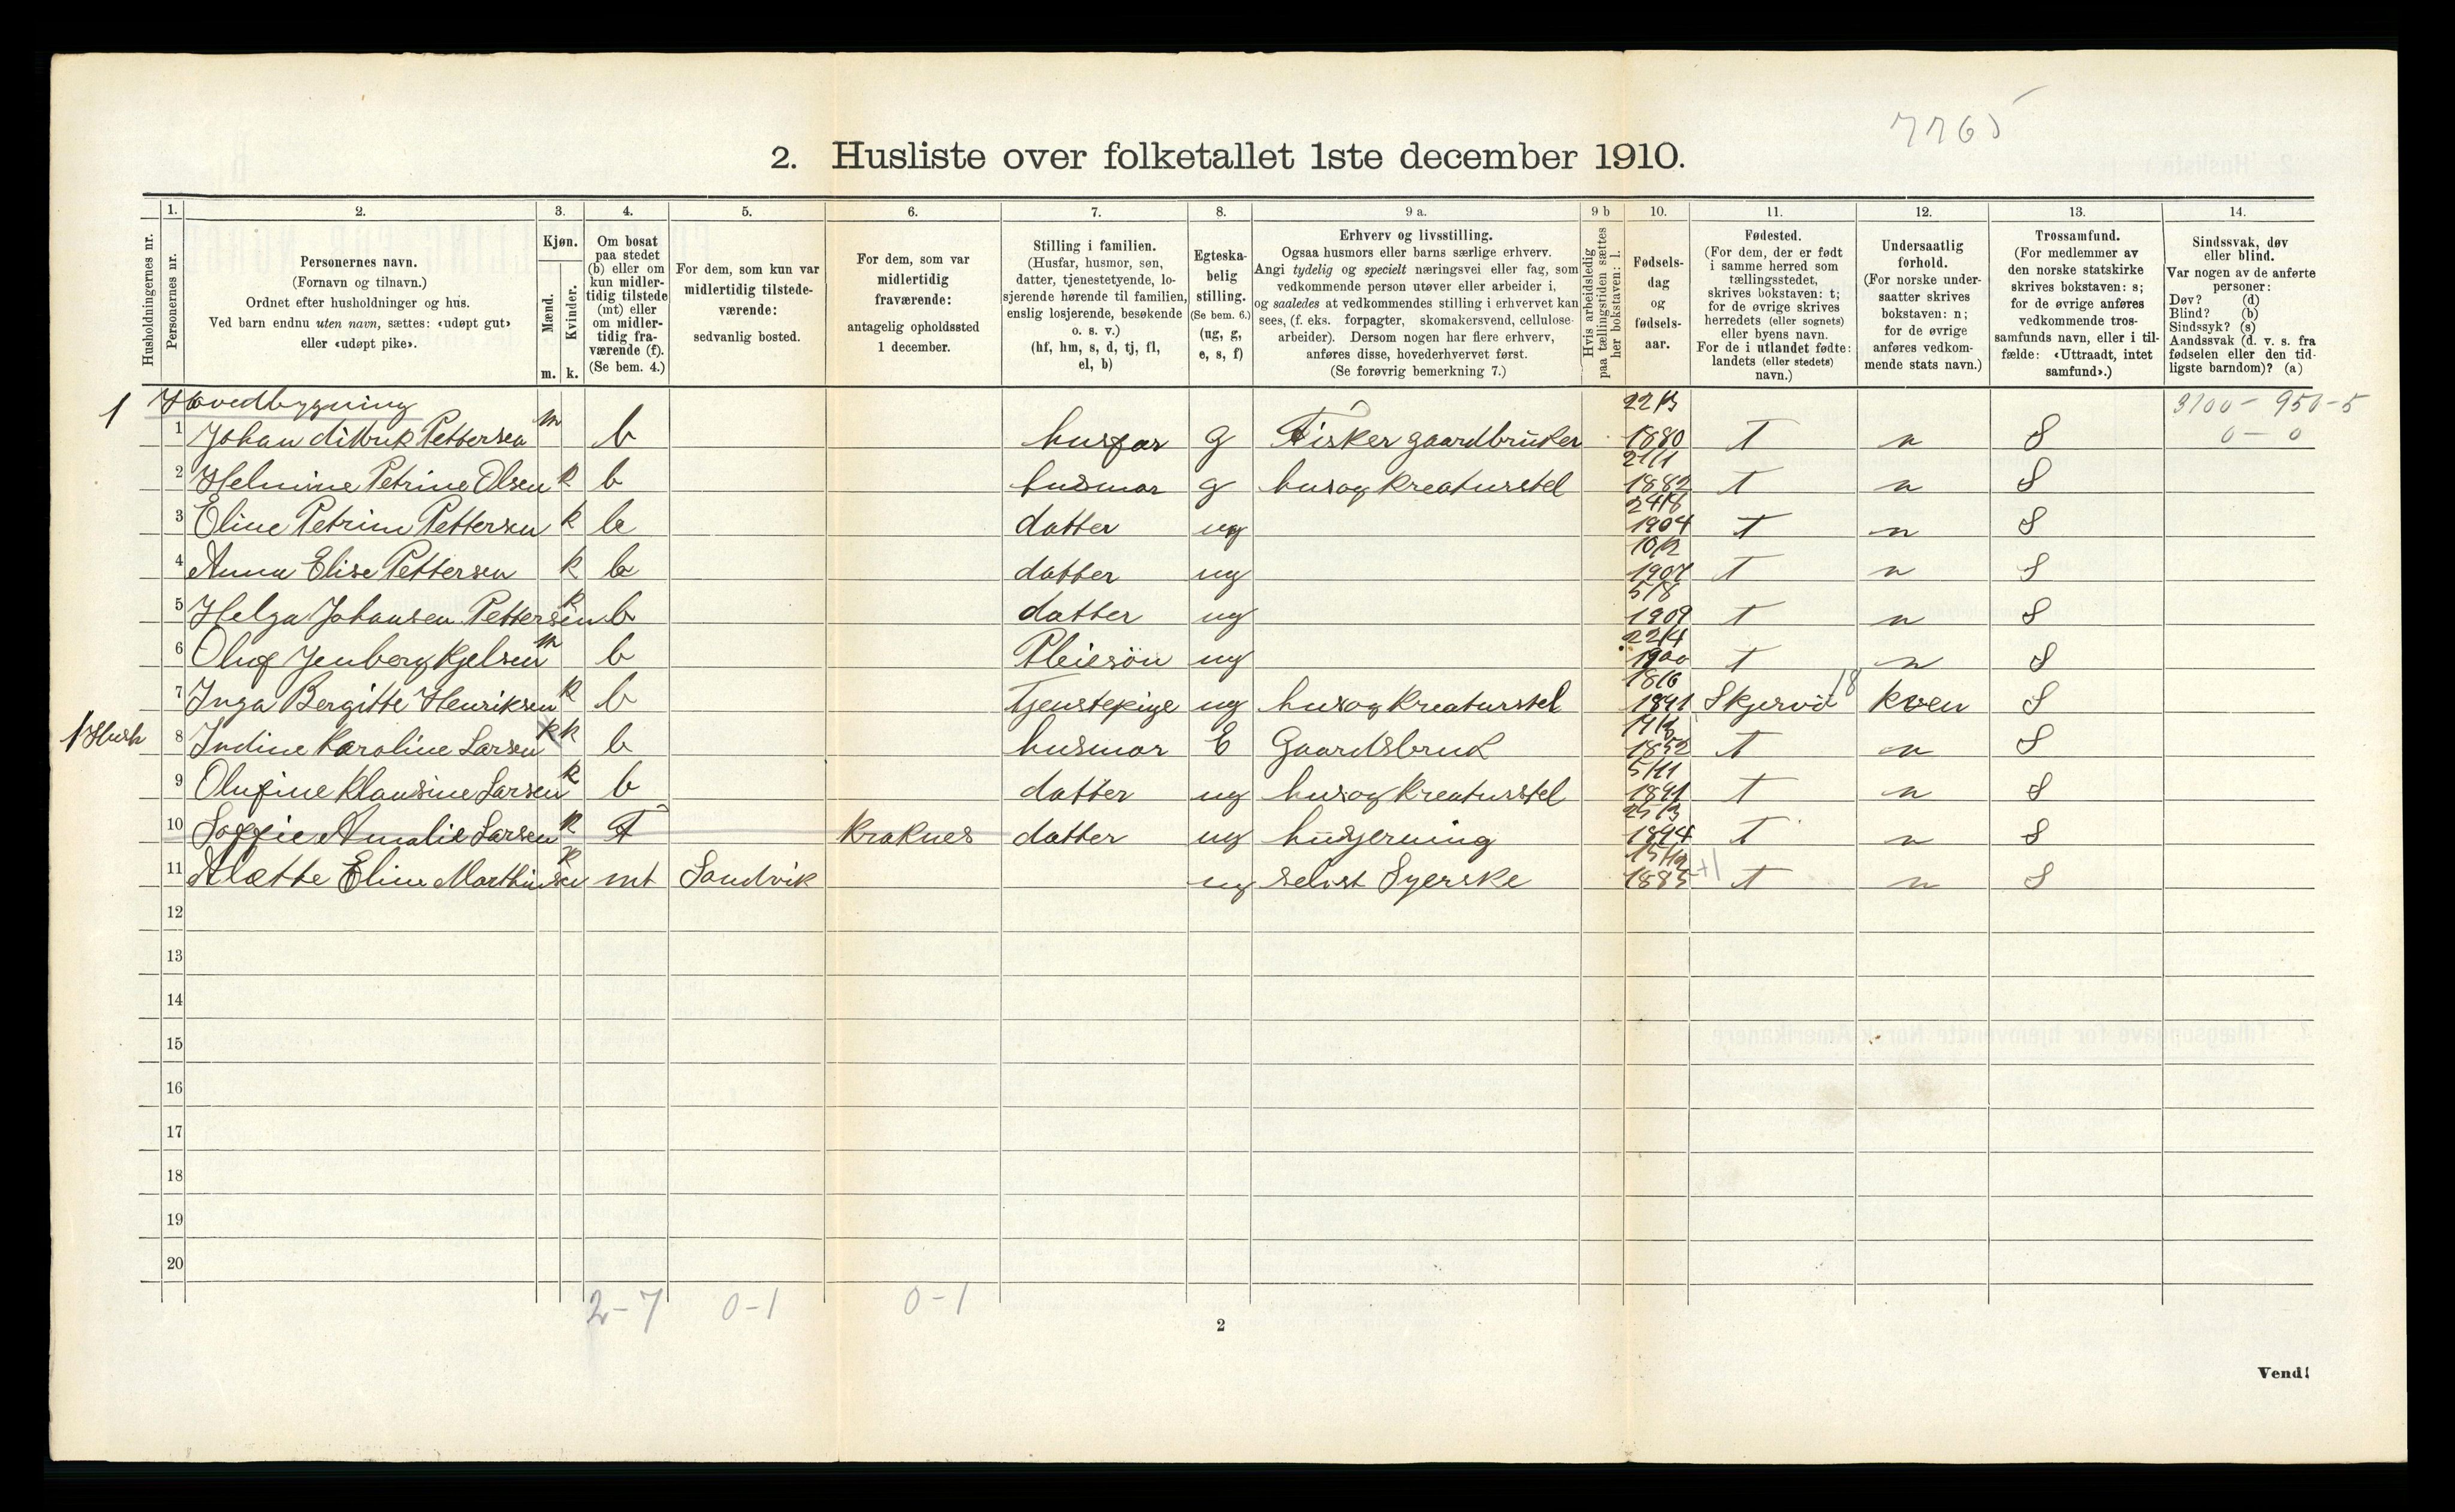 7765
2. Husliste over folketallet 1ste december 1910.
Husholdningernes nr.
1.
Personernes nr.
2.
Personernes navn.
(Fornavn og tilnavn.)
Ordnet efter husholdninger og hus.
Ved barn endnu uten navn, sættes: «udøpt gut»
eller «udøpt pike».
3.
Kjøn.
Mænd.
Kvinder.
m. k.
4.
Om bosat
paa stedet
(b) eller om
kun midler-
tidig tilstede
(mt) eller
om midler-
tidig fra-
værende (f).
(Se bem. 4.)
5.
For dem, som kun var
midlertidig tilstede-
værende:
sedvanlig bosted.
6.
For dem, som var
midlertidig
fraværende:
antagelig opholdssted
1 december.
7.
Stilling i familien.
(Husfar, husmor, søn,
datter, tjenestetyende, lo-
sjerende hørende til familien,
enslig losjerende, besøkende
o. s. v.)
(hf, hm, s, d, tj, fl,
el, b)
8.
Egteska-
belig
stilling.
(Se bem. 6.)
(ug, g,
e, s, f)
9 a.
Erhverv og livsstilling.
Ogsaa husmors eller barns særlige erhverv.
Angi tydelig og specielt næringsvei eller fag, som
vedkommende person utøver eller arbeider i,
og saaledes at vedkommendes stilling i erhvervet kan
sees, (f. eks. forpagter, skomakersvend, cellulose-
arbeider). Dersom nogen har flere erhverv,
anføres disse, hovederhvervet først.
(Se forøvrig bemerkning 7.)
9 b
Hvis arbeidsledig
paa tællingstiden sættes
her bokstaven: l.
10.
Fødsels-
dag
og
fødsels-
aar.
11.
Fødested.
(For dem, der er født
i samme herred som
tællingsstedet,
skrives bokstaven: t;
for de øvrige skrives
herredets (eller sognets)
eller byens navn.
For de i utlandet fødte:
landets (eller stedets)
navn.)
12.
Undersaatlig
forhold.
(For norske under-
saatter skrives
bokstaven: n;
for de øvrige
anføres vedkom-
mende stats navn.)
13.
Trossamfund.
(For medlemmer av
den norske statskirke
skrives bokstaven: s;
for de øvrige anføres
vedkommende tros-
samfunds navn, eller i til-
fælde: «Uttraadt, intet
samfund».)
14.
Sindssvak, døv
eller blind.
Var nogen av de anførte
personer:
Døv? (d)
Blind? (b)
Sindssyk? (s)
Aandssvak (d. v. s. fra
fødselen eller den tid-
ligste barndom)? (a)
1 Hovedbygning 22/3 3100 - 950 - 5
1 Johan Pettersen m b husfar g Fisker gaardbruker 1880 T n S 0 - 0
21/1
2 Helmine Petrine Olsen k b husmor g hus og kreaturstel 1882 T n S
24/8
3 Eline Petrine Pettersen k b datter ug 1904 T n S
10/2
4 Anna Elise Pettersen k b datter ug 1907 T n S
5/8
5 Helga Johansen Pettersen k b datter ug 1909 T n S
22/4
6 Oluf Kjelsen m b Pleiesön ug 1900 T n S
18/6
7 Inga Bergitte Henriksen k b Tjenstepige ug hus og kreaturstel 1891 Skjervö 18 kven S
1 Hush 8 Indine Karoline Larsen k k b husmor E Gaardsbruk 1852 T n S
5/11
9 Olufine Klausine Larsen k b datter ug hus og kreaturstel 1891 T n S
25/3
10 Soffie Amalie Larsen k F Kraknes datter ug husgerning 1894 T n S
15/12
11 Alætte Eline Marthinsen k mt Sandvik ug selvst Syerske 1885 +1 T n S
12
13
14
15
16
17
18
19
20
2 - 7 0 - 1 0 - 1
2
Vend!